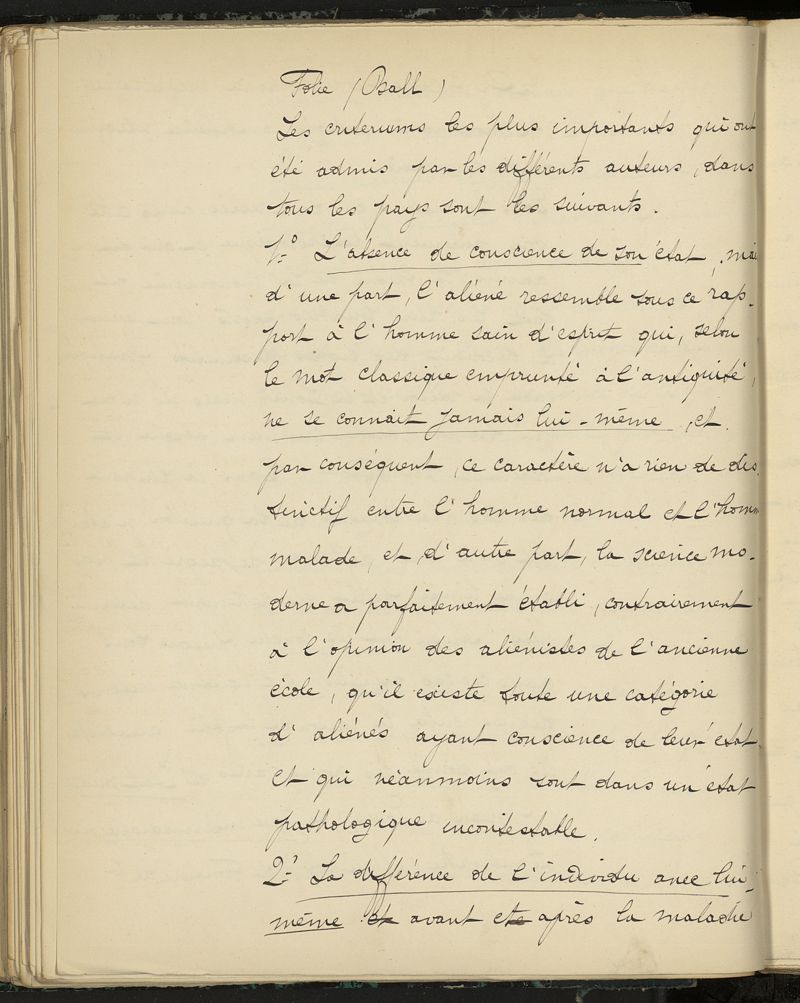 Folie (Ball)
Les criteriums les plus importants qui ont
été admis par les différents auteurs, dans
tous les pays sont les suivants.
1.° L'absence de conscience de son état, mai
d'une part, l'aliéné ressemble sous ce rap-
port à l'homme sain d'esprit qui, selon
le mot classique emprunté à l'antiquité,
ne se connait jamais lui-même, et
par conséquent, ce caractère n'a rien de dis
tinctif entre l'homme normal et l'homm
malade, et, d'autre part, la science mo-
derne a parfaitement établi, contrairement
à l'opinion des aliénistes de l'ancienne
école, qu'il existe toute une catégorie
d'aliénés ayant conscience de leur état
et qui néanmoins sont dans un état
pathologique incontestable.
2.° La différence de l'individu avec lui-
même et avant ete après la maladie